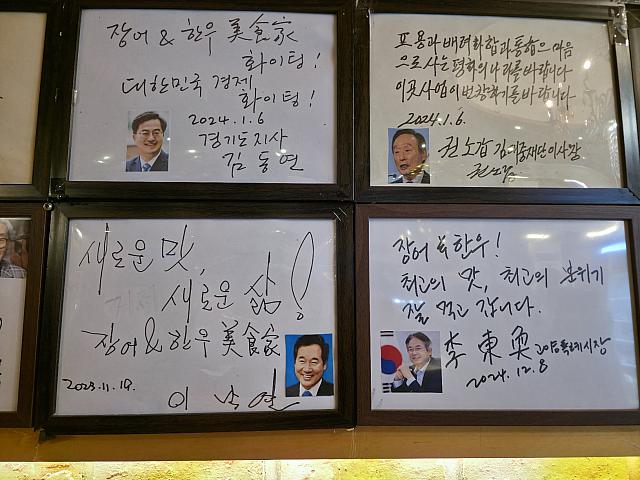 장어 & 한우 美食家
화이팅!
대한민국 경제
화이팅!
2024.1.6
경기도지사
김동연
포용과 배려 화합과 통합으 마음
으로 사는 평화의 나라를 바랍니다
이곳 사업이 번창하기를 바랍니다
2024.1.6.
권노갑 김대중재단이사장
권노갑
새로운 맛,
새로운 삶!
장어 & 한우 美食家
2023.11.19.
이낙연
장어 & 한우!
최고의 맛, 최고의 분위기
잘 먹고 갑니다.
李東奐 고양특례시장
2024.12.8